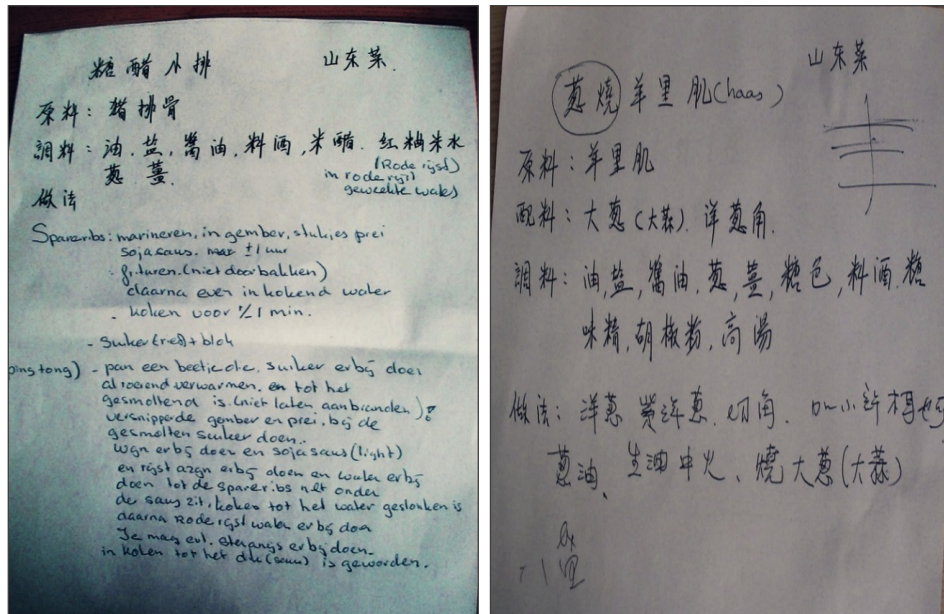 糖醋小排 山东菜.
原料: 猪排骨
調料: 油, 盐, 醬油, 料酒, 米醋. 红籼米水
葱 薑. (Rode rijst)
in rode rijst
geweekte water)
做法
Spareribs: marineren, in gember, stukjes prei
sojasaus. ± 1 uur
frituren (niet doorbakken)
daarna even in kokend water
koken voor ½ 1 min.
- Suiker (riet) + blok
- pan een beetje olie, suiker erbij doen
al roerend verwarmen, en tot het
gesmolten is (niet laten aanbranden)!
versnipperde gember en prei, bij de
gesmolten suiker doen.
wijn erbij doen en sojasaus (light)
en rijst azijn erbij doen en water erbij
doen tot de spareribs net onder
de saus zit, koken tot het water geslonken is
daarna Rode rijst water erbij doen
Je mag evt. erbij doen.
in koken tot het dik (saus) is geworden.
山东菜
葱燒羊里肌 (haas)
原料: 羊里肌
配料: 大葱 (大蒜). 洋葱角.
調料: 油, 盐, 醬油, 葱, 薑, 糖色, 料酒, 糖
味精, 胡椒粉, 高湯
做法: 洋葱 洋葱. 切角. 小
葱油, 生油中火, 燒大葱 (大蒜)